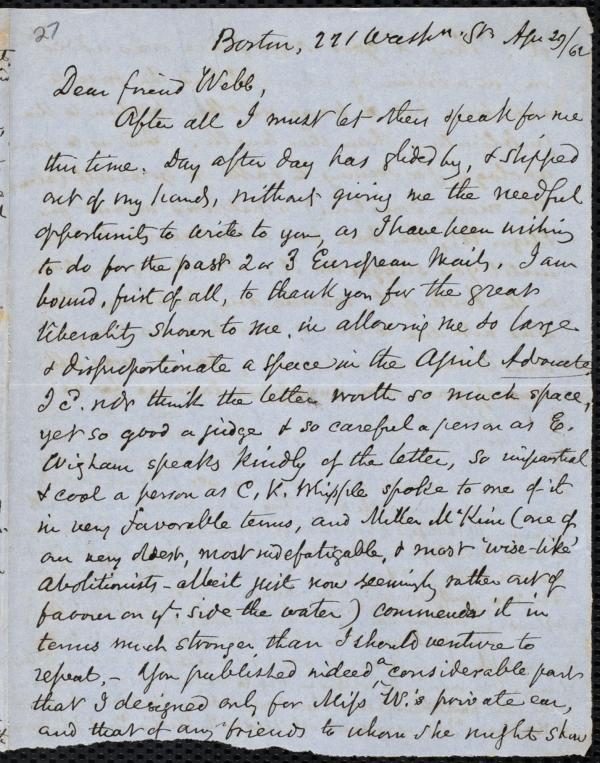 27
Boston, 221 Washn. St. Apr 29/62
Dear friend Webb,
After all I must let others speak for me
this time. Day after day has glided by, & slipped
out of my hands, without giving me the needful
opportunity to write to you, as I have been wishing
to do for the past 2 or 3 European Mails. I am
bound, first of all, to thank you for the great
liberality shown to me, in allowing me so large
& disproportionate a space in the April Advocate.
I cd. not think the letter worth so much space,
yet so good a judge & so careful a person as E.
Wigham speaks kindly of the letter, so impartial
& cool a person as C. K. Whipple spoke to me of it
in very favorable terms, and Miller McKim (one of
our very oldest, most indefatigable, & most 'wise-like'
abolitionists - albeit just now seemingly rather out of
favour on yr. side the water) commends it in
terms much stronger than I should venture to
repeat. - You published indeed a considerable part
that I designed only for Miss W.'s private ear,
and that of any friends to whom she might show